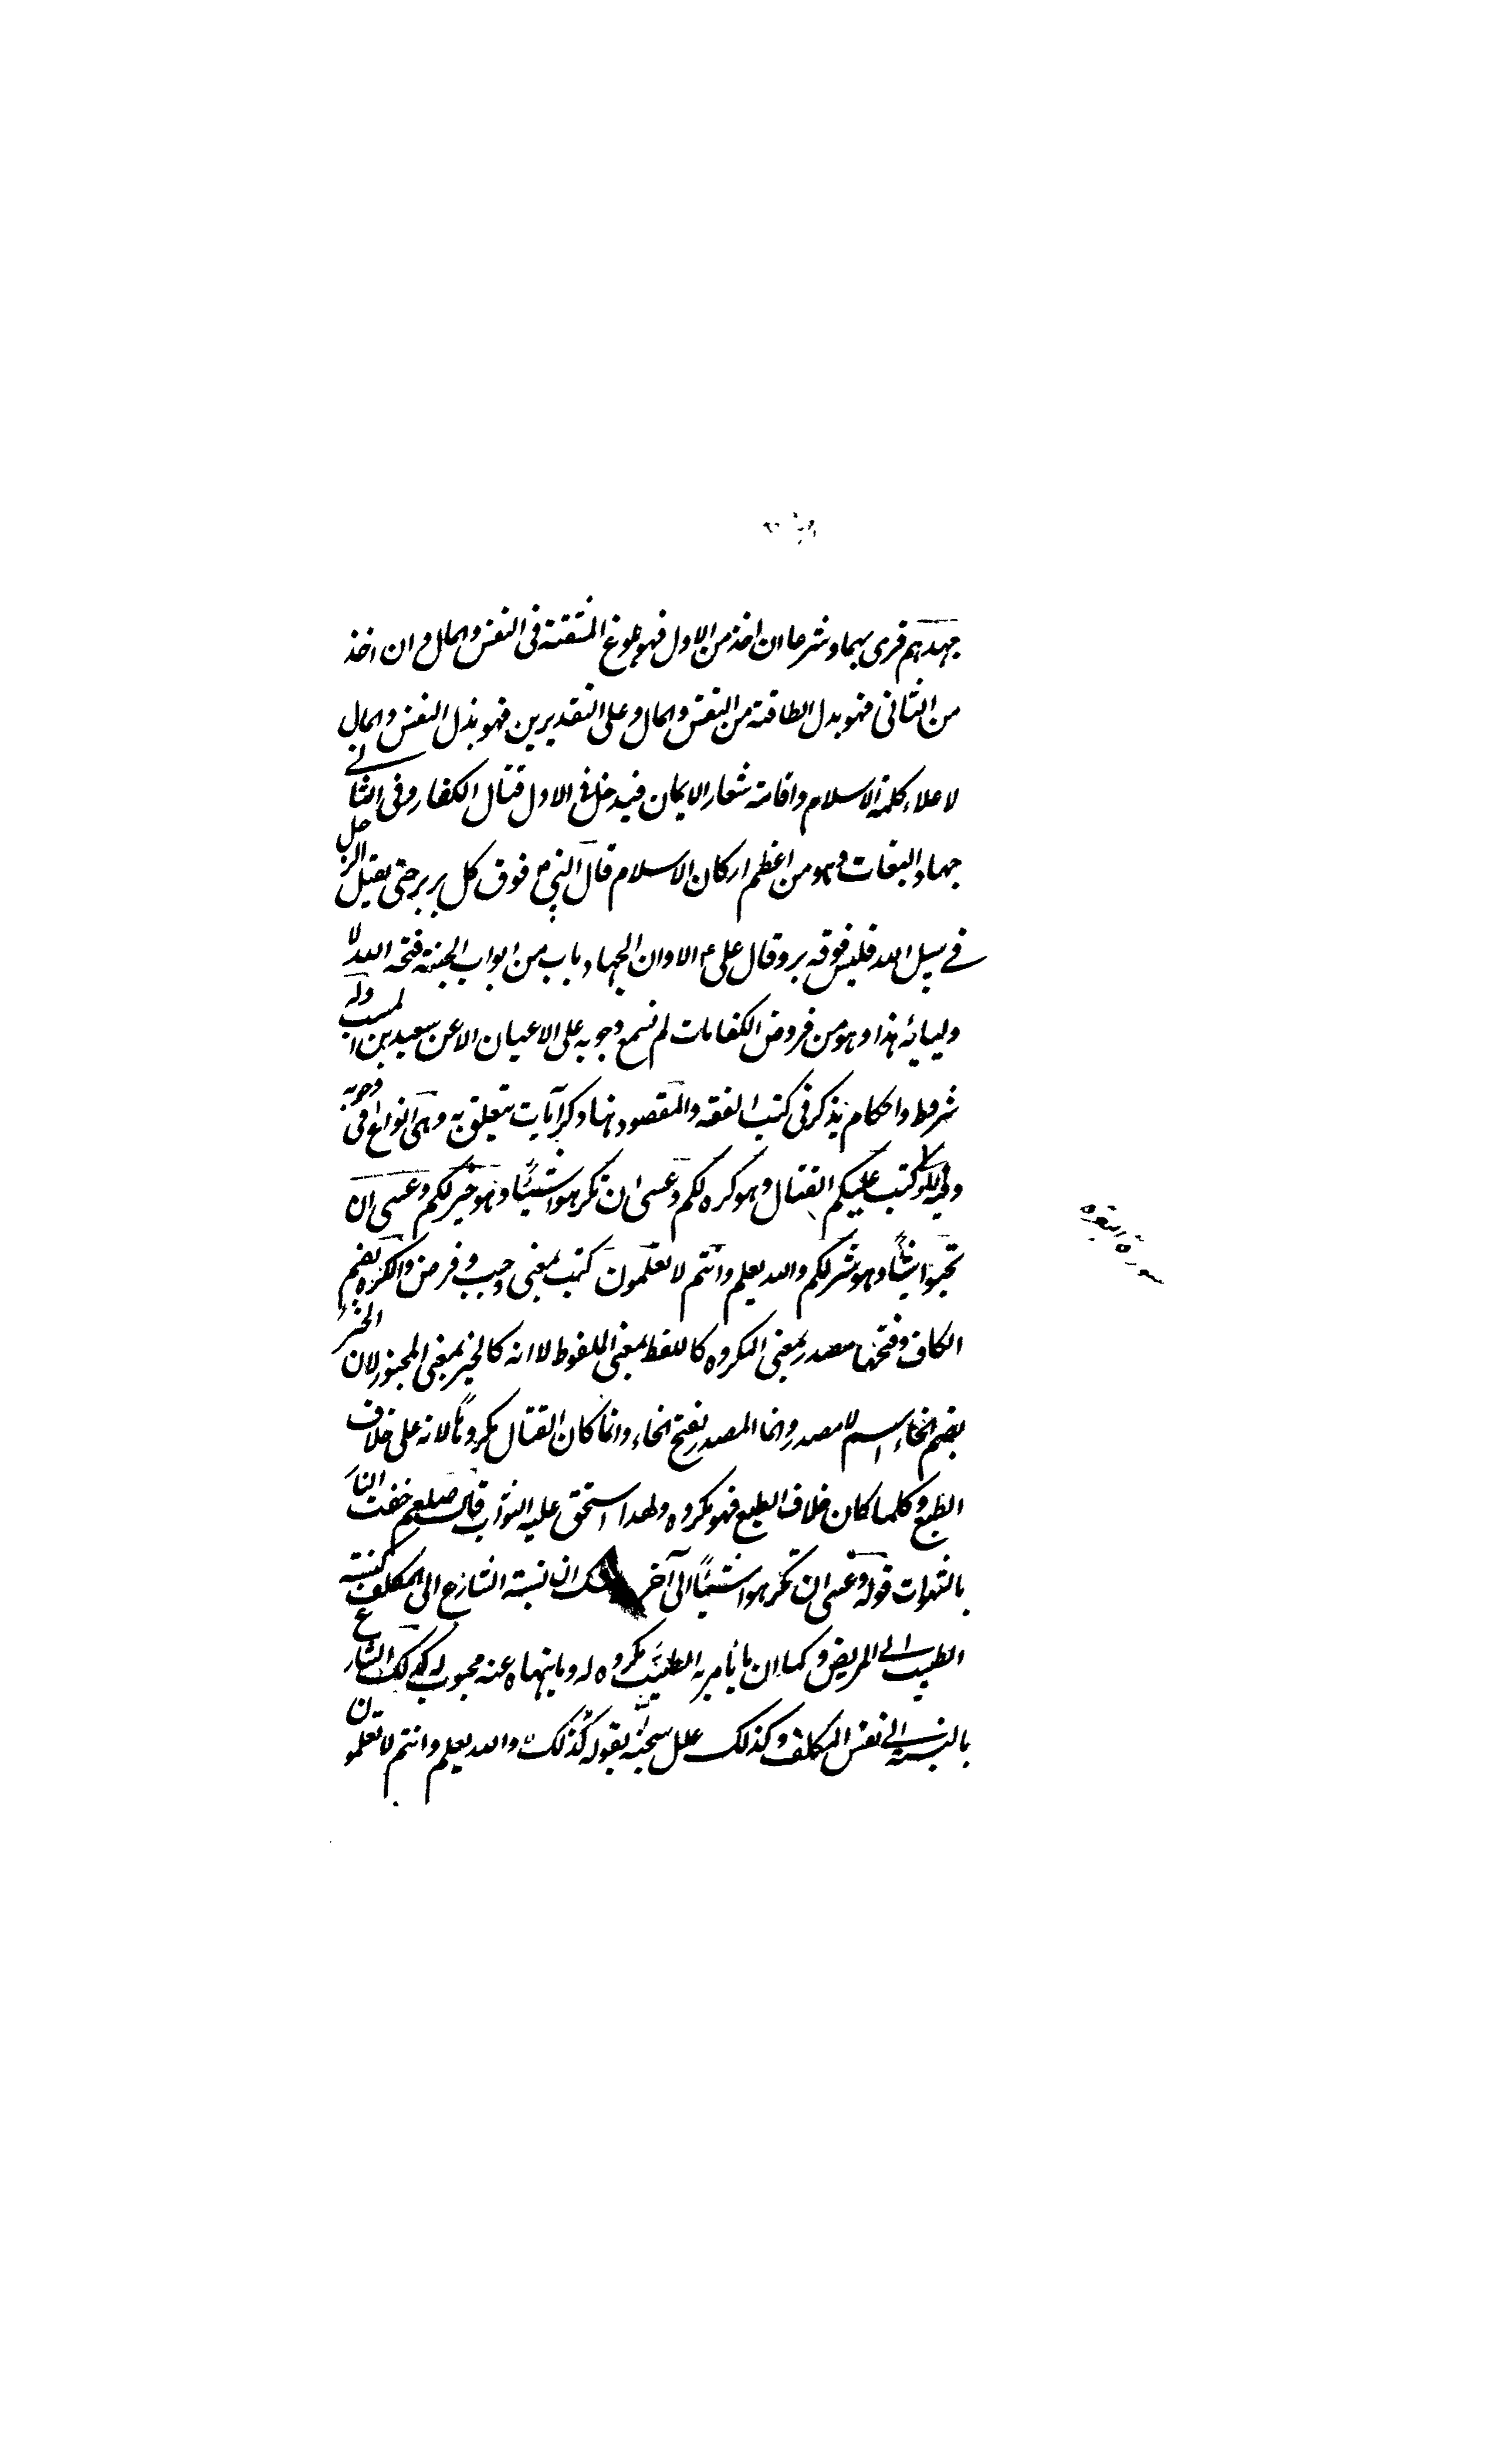 جهدهم قرى بهما وشرعا ان اخذ من الاول فهو بلوغ المشقة فى النفس والمال وان اخذ
من الثانى فهو بذل الطاقة من النفس والمال وعلى التقديرين فهو بذل النفس والمال
لاعلاء كلمة الاسلام واقامة شعار الايمان فيدخل فى الاول قتال الكفار وفى الثانى
جهاد البغات وهو من اعظم اركان الاسلام قال النبى ص فوق كل بر بر حتى يقتل الرجل
فى سبيل الله فليس فوقه بر وقال على ع الا وان الجهاد باب من ابواب الجنة فتحه الله لا
وليائه هذا وهو من فروض الكفايات لم نسمع وجوبه على الاعيان الا عن سعيد بن المسيب وله
شروط واحكام يذكر فى كتب الفقه والمقصود هنا ذكر آيات يتعلق به وهى انواع ا فى وجوبه
وفيه كتب عليكم القتال وهو كره لكم وعسى ان تكرهوا شيئا وهو خير لكم وعسى ان
تحبوا شيئا وهو شر لكم والله يعلم وانتم لا تعلمون كتب بمعنى وجب وفرض والكره بضم
الكاف وفتحها مصدر بمعنى المكروه كاللفظ بمعنى الملفوظ لا انه كالخبز بمعنى المخبوز لان الخبز
بضم الخاء اسم لا مصدر وانما المصدر بفتح الخاء وانما كان القتال مكروها لانه على خلاف
الطبع وكلما كان خلاف الطبع فهو مكروه ولهذا استحق عليه الثواب قال صلعم حفت النار
بالشهوات قوله وعسى ان تكرهوا شيئا الى آخر ان نسبة الشارع الى المكلف كنسبة
الطبيب الى المريض وكما ان ما يأمر به الطبيب مكروه له وما ينهاه عنه محبوب له كذلك الشارع
بالنسبة الى نفس المكلف وكذلك علل سبحنه بقوله كذلك والله يعلم وانتم لا تعلمون
سورة البقره